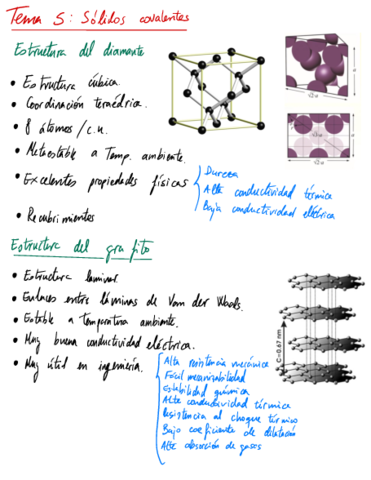 Tema 5: Sólidos covalentes
Estructura del diamante
• Estructura cúbica.
• Coordinación tetraédrica.
• 8 átomos / c.u.
• Metaestable a Temp. ambiente.
• Excelentes propiedades físicas
Dureza
Alta conductividad térmica
Baja conductividad eléctrica
• Recubrimientos
Estructura del grafito
• Estructura laminar.
• Enlaces entre láminas de Van der Waals.
• Estable a Temperatura ambiente.
• Muy buena conductividad eléctrica.
• Muy útil en ingeniería.
Alta resistencia mecánica
Fácil mecanizabilidad
Estabilidad química
Alta conductividad térmica
Resistencia al choque térmico
Bajo coeficiente de dilatación
Alta absorción de gases
C=0.67 nm